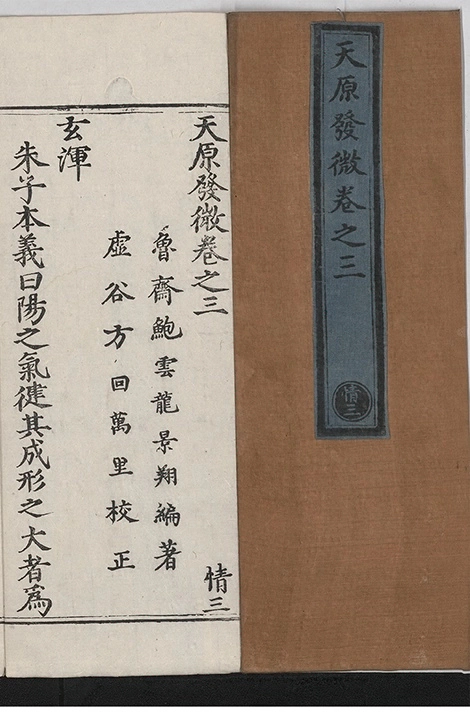 天原發微卷之三
情三
天原發微卷之三
情三
魯齋鮑雲龍景翔編著
虛谷方回萬里校正
玄渾
朱子本義曰陽之氣健其成形之大者爲